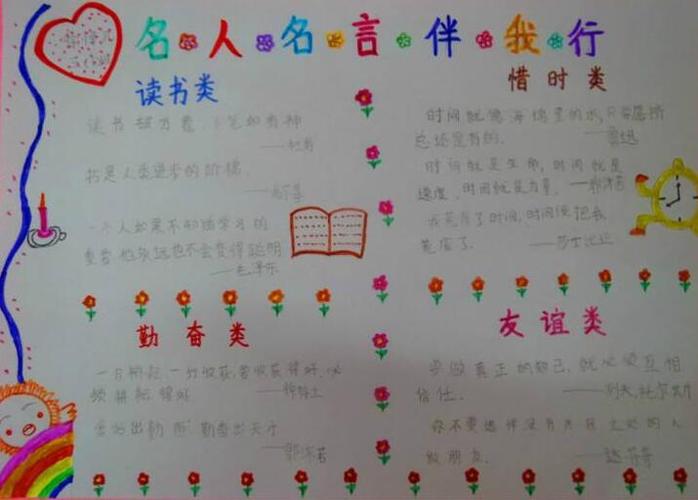 名人名言伴我行
读书类
读书破万卷，下笔如有神
——杜甫
书是人类进步的阶梯。
一个人如果不知道学习的
重要，他永远也不会变得聪明
——毛泽东
惜时类
时间就像海绵里的水，只要愿挤
总还是有的。——鲁迅
时间就是生命，时间就是
速度，时间就是力量。——郭沫若
我荒废了时间，时间便把我
荒废了。——莎士比亚
勤奋类
一分耕耘一分收获，要收获得好，必
须耕耘得好——徐特立
勤奋出天才
——郭沫若
友谊类
要做真正的知己，就必须互相
信任。——列夫.托尔斯
你不要选择没有
做朋友。